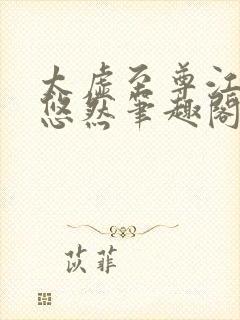 太虚至尊江
悠然笔趣阁
苡菲